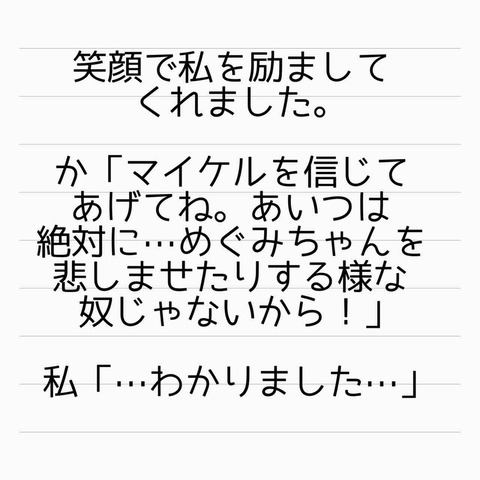 笑顔で私を励まして
くれました。
か「マイケルを信じて
あげてね。あいつは
絶対に…めぐみちゃんを
悲しませたりする様な
奴じゃないから！」
私「…わかりました…」